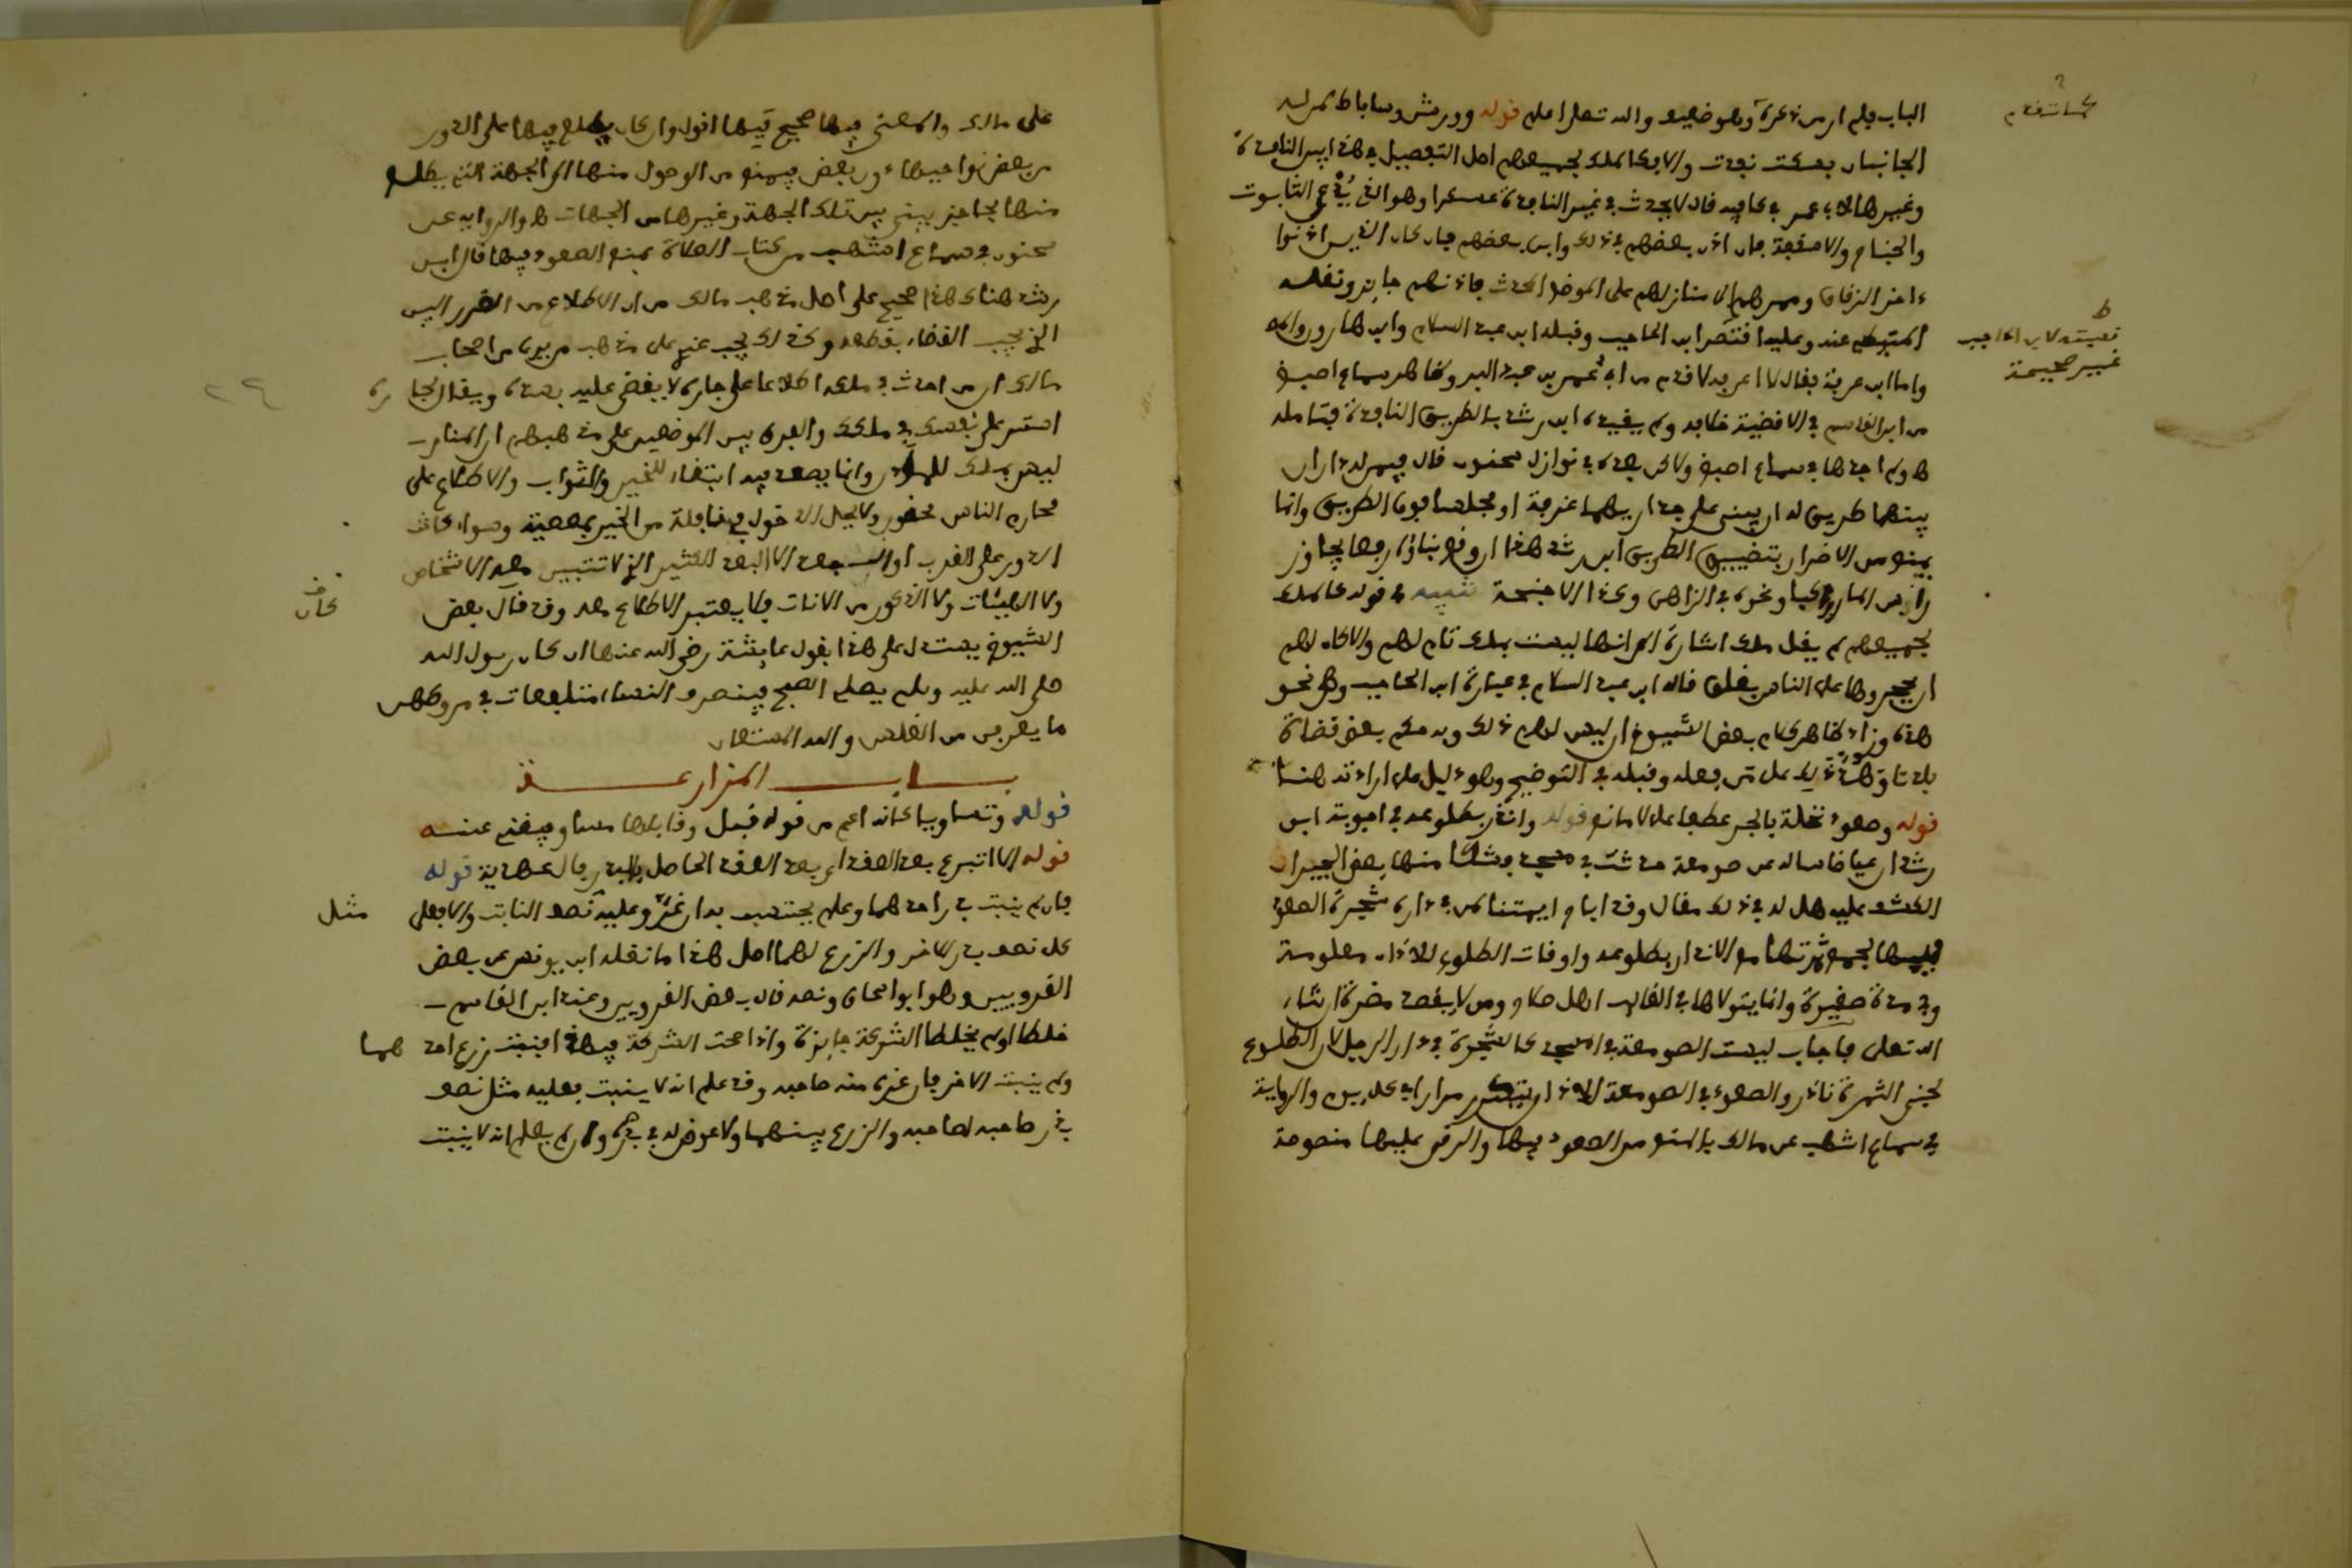 الباب فلم ار من ذكره وهو ضعيف والله تعلى اعلم قوله وروشن وساباط لمن له
الجانبان بسكة نفذت والا فكالملك لجميعهم اصل التفصيل في هذا بين النافذة
وغيرها لابي عمر في كافيه قال لا يحدث في غير النافذة عسكرا وهو الذي يدعى التابوت
والجناح والاسقيفة فان اذن بعضهم في ذلك وابى بعضهم فان كان الذين اذنوا
ءاخر الزقاق وممرهم الى منازلهم على الموضع المحدث فاذنهم جايز ونقله
المتيطي عنه وعليه اقتصر ابن الحاجب وقبله ابن عبد السلام وابن هارون
واما ابن عرفة فقال لا اعرفه لاقدم من ابي عمر بن عبد البر وظاهر سماع اصبغ
من ابن القاسم في الاقضية خلافه ولم يقيده ابن رشد بالطريق النافذة فتامله
ولم اجدها في سماع اصبغ ولاكن بعده في نوازل سحنون قال فيمن له داران
بينهما طريق له ان يبني على جداريهما غرفة او مجلسا فوق الطريق وانما
يمنع من الاضرار بتضييق الطريق ابن رشد هذا ان رفع بناؤه رفعا يجاوز
رأس المار راكبا ونحوه في الزاهي وكذا الاجنحة تنبيه في قوله كالملك
لجميعهم لم يقل ملك اشارة الى انها ليست بملك تام لهم والا كان لهم
ان يحجروها على الناس بغلق قاله ابن عبد السلام في عبارة ابن الحاجب وهي نحو
هذه وزاد ظاهر كلام بعض الشيوخ ان ليس لهم ذلك وبه حكم بعض قضاة
بلدنا وهدد ذلك على من فعله وقبله في التوضيح وهو دليل على ارادته هنا
قوله وصعود نخلة بالجر عطفا على لا مانع قوله وانذر بطلوعه في اجوبة ابن
رشد ان عياضا ساله عن صومعة حدثت في مسجد وشكا منها بعض الجيران
الكشف عليه هل له في ذلك مقال وقد اباح ايمتنا لمن في داره شجرة الصعود
فيها لجمع ثمرتها مع الانذار بطلوعه واوقات الطلوع للاذان معلومة
وفي مدة صغيرة وانما يتولاها في الغالب اهل صلاح ومن لا يقصد مضرة ان شاء
الله تعلى فاجاب ليست الصومعة في المسجد كالشجرة في دار الرجل لان الطلوع
لجني الثمرة نادر والصعود في الصومعة للاذان يتكرر مرارا في كل يوم والرواية
في سماع اشهب عن مالك بالمنع من الصعود فيها والرقي عليها منصوصة
لمسات قدم
ط
تعميته لابن الحاجب
غير صحيحة
على مالك والمعنى فيها صحيح فيها اقول وان كان يطلع فيها على الدور
من بعض نواحيها دون بعض فيمنع من الوصول منها الى الجهة التي يطلع
منها بحاجز يبنى بين تلك الجهة وغيرها من الجهات والرواية عن
سحنون في سماع اشهب من كتاب الصلاة يمنع الصعود فيها قال ابن
رشد هناك هذا صحيح على اصل مذهب مالك من ان الاطلاع من الضرر البين
الذي يجب القضاء بقطعه وكذلك يجب عندي على مذهب من يرى من اصحاب
مالك ان من احدث في ملكه اطلاعا على جاره لا يقضى عليه بسده ويقال لجاره
استر على نفسك في ملكك والفرق بين الموضعين على مذهبهم ان المنار
ليس بملك للمؤذن وانما يصعد فيه ابتغاء للخير والثواب والاطلاع على
محارم الناس محظور ولا يحل الدخول في نافلة من الخير بمعصية وسواء كانت
الدور على القرب او البعد الا البعد الكثير الذي لا تتبين معه الاشخاص
ولا الهيئات ولا الذكور من الاناث فلا يعتبر الاطلاع معه وقد كان بعض
الشيوخ يستدل على هذا بقول عايشة رضي الله عنها ان كان رسول الله
صلى الله عليه وسلم يصلي الصبح فينصرف النساء متلفعات في مروطهن
ما يعرفن من الغلس والله المستعان
باب المزارعة
قوله وتساويا كانه اعم من قوله قبل وقابلها مساو فيغني عنه
قوله الا لتبرع بعد العقد اي بعد العقد الحاصل بالبذر قال عهدية قوله
فان لم ينبت بذر احدهما وعلم لم يحتسب به ان غر وعليه مثل نصف النابت والا فعلى
كل نصف بذر الاخر والزرع لهما اصل هذا ما نقله ابن يونس عن بعض
القرويين وهو ابو اسحاق ونصه قال بعض القرويين وعند ابن القاسم
خلطا او لم يخلطا الشركة جايزة واذا صحت الشركة فيهذا فنبت زرع احدهما
ولم ينبت الاخر فان غره منه صاحبه وقد علم انه لا ينبت فعليه مثل نصف
بذر صاحبه لصاحبه والزرع بينهما ولا عوض له في بذره وان لم يعلم انه لا ينبت
٢٤
كان